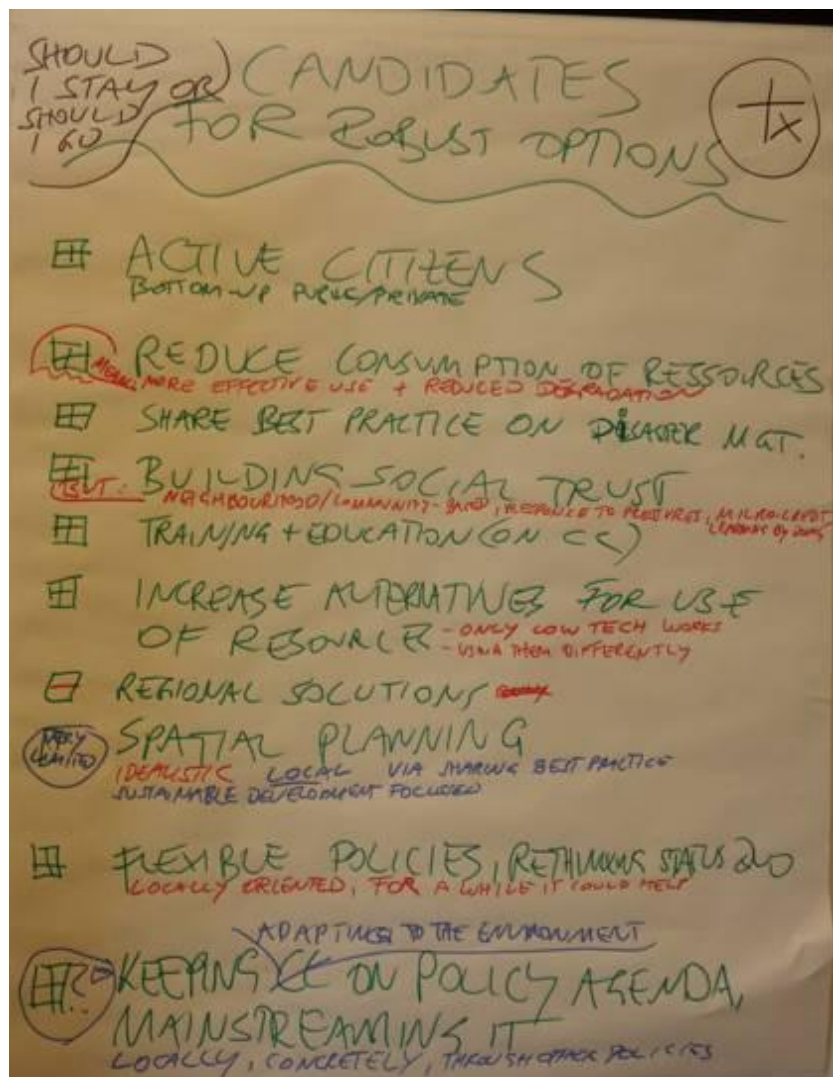 SHOULD
I STAY OR
SHOULD
I GO
CANDIDATES
FOR ROBUST OPTIONS
+x
ACTIVE CITIZENS
BOTTOM-UP PUBLIC/PRIVATE
REDUCE CONSUMPTION OF RESSOURCES
MEANS MORE EFFECTIVE USE + REDUCED DEGRADATION
SHARE BEST PRACTICE ON DISASTER MGT.
BUILDING SOCIAL TRUST
BUT: NEIGHBOURHOOD/COMMUNITY-BASED, RESPONSE TO PRESSURES, MICROCREDIT
LEARNING BY DOING
TRAINING + EDUCATION (ON CC)
INCREASE ALTERNATIVES FOR USE
OF RESOURCES - ONLY LOW TECH WORKS
- USING THEM DIFFERENTLY
REGIONAL SOLUTIONS
VERY
LIMITED
SPATIAL PLANNING
IDEALISTIC LOCAL VIA SHARING BEST PRACTICE
SUSTAINABLE DEVELOPMENT FOCUSED
FLEXIBLE POLICIES, RETHINKING STATUS QUO
LOCALLY ORIENTED, FOR A WHILE IT COULD HELP
ADAPTING TO THE ENVIRONMENT
KEEPING CC ON POLICY AGENDA,
MAINSTREAMING IT
LOCALLY, CONCRETELY, THROUGH OTHER POLICIES